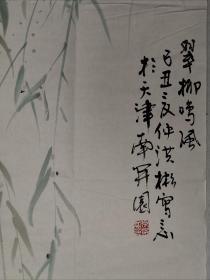 翠柳鸣风
己丑之夏仲洪彬写意
于天津南开园